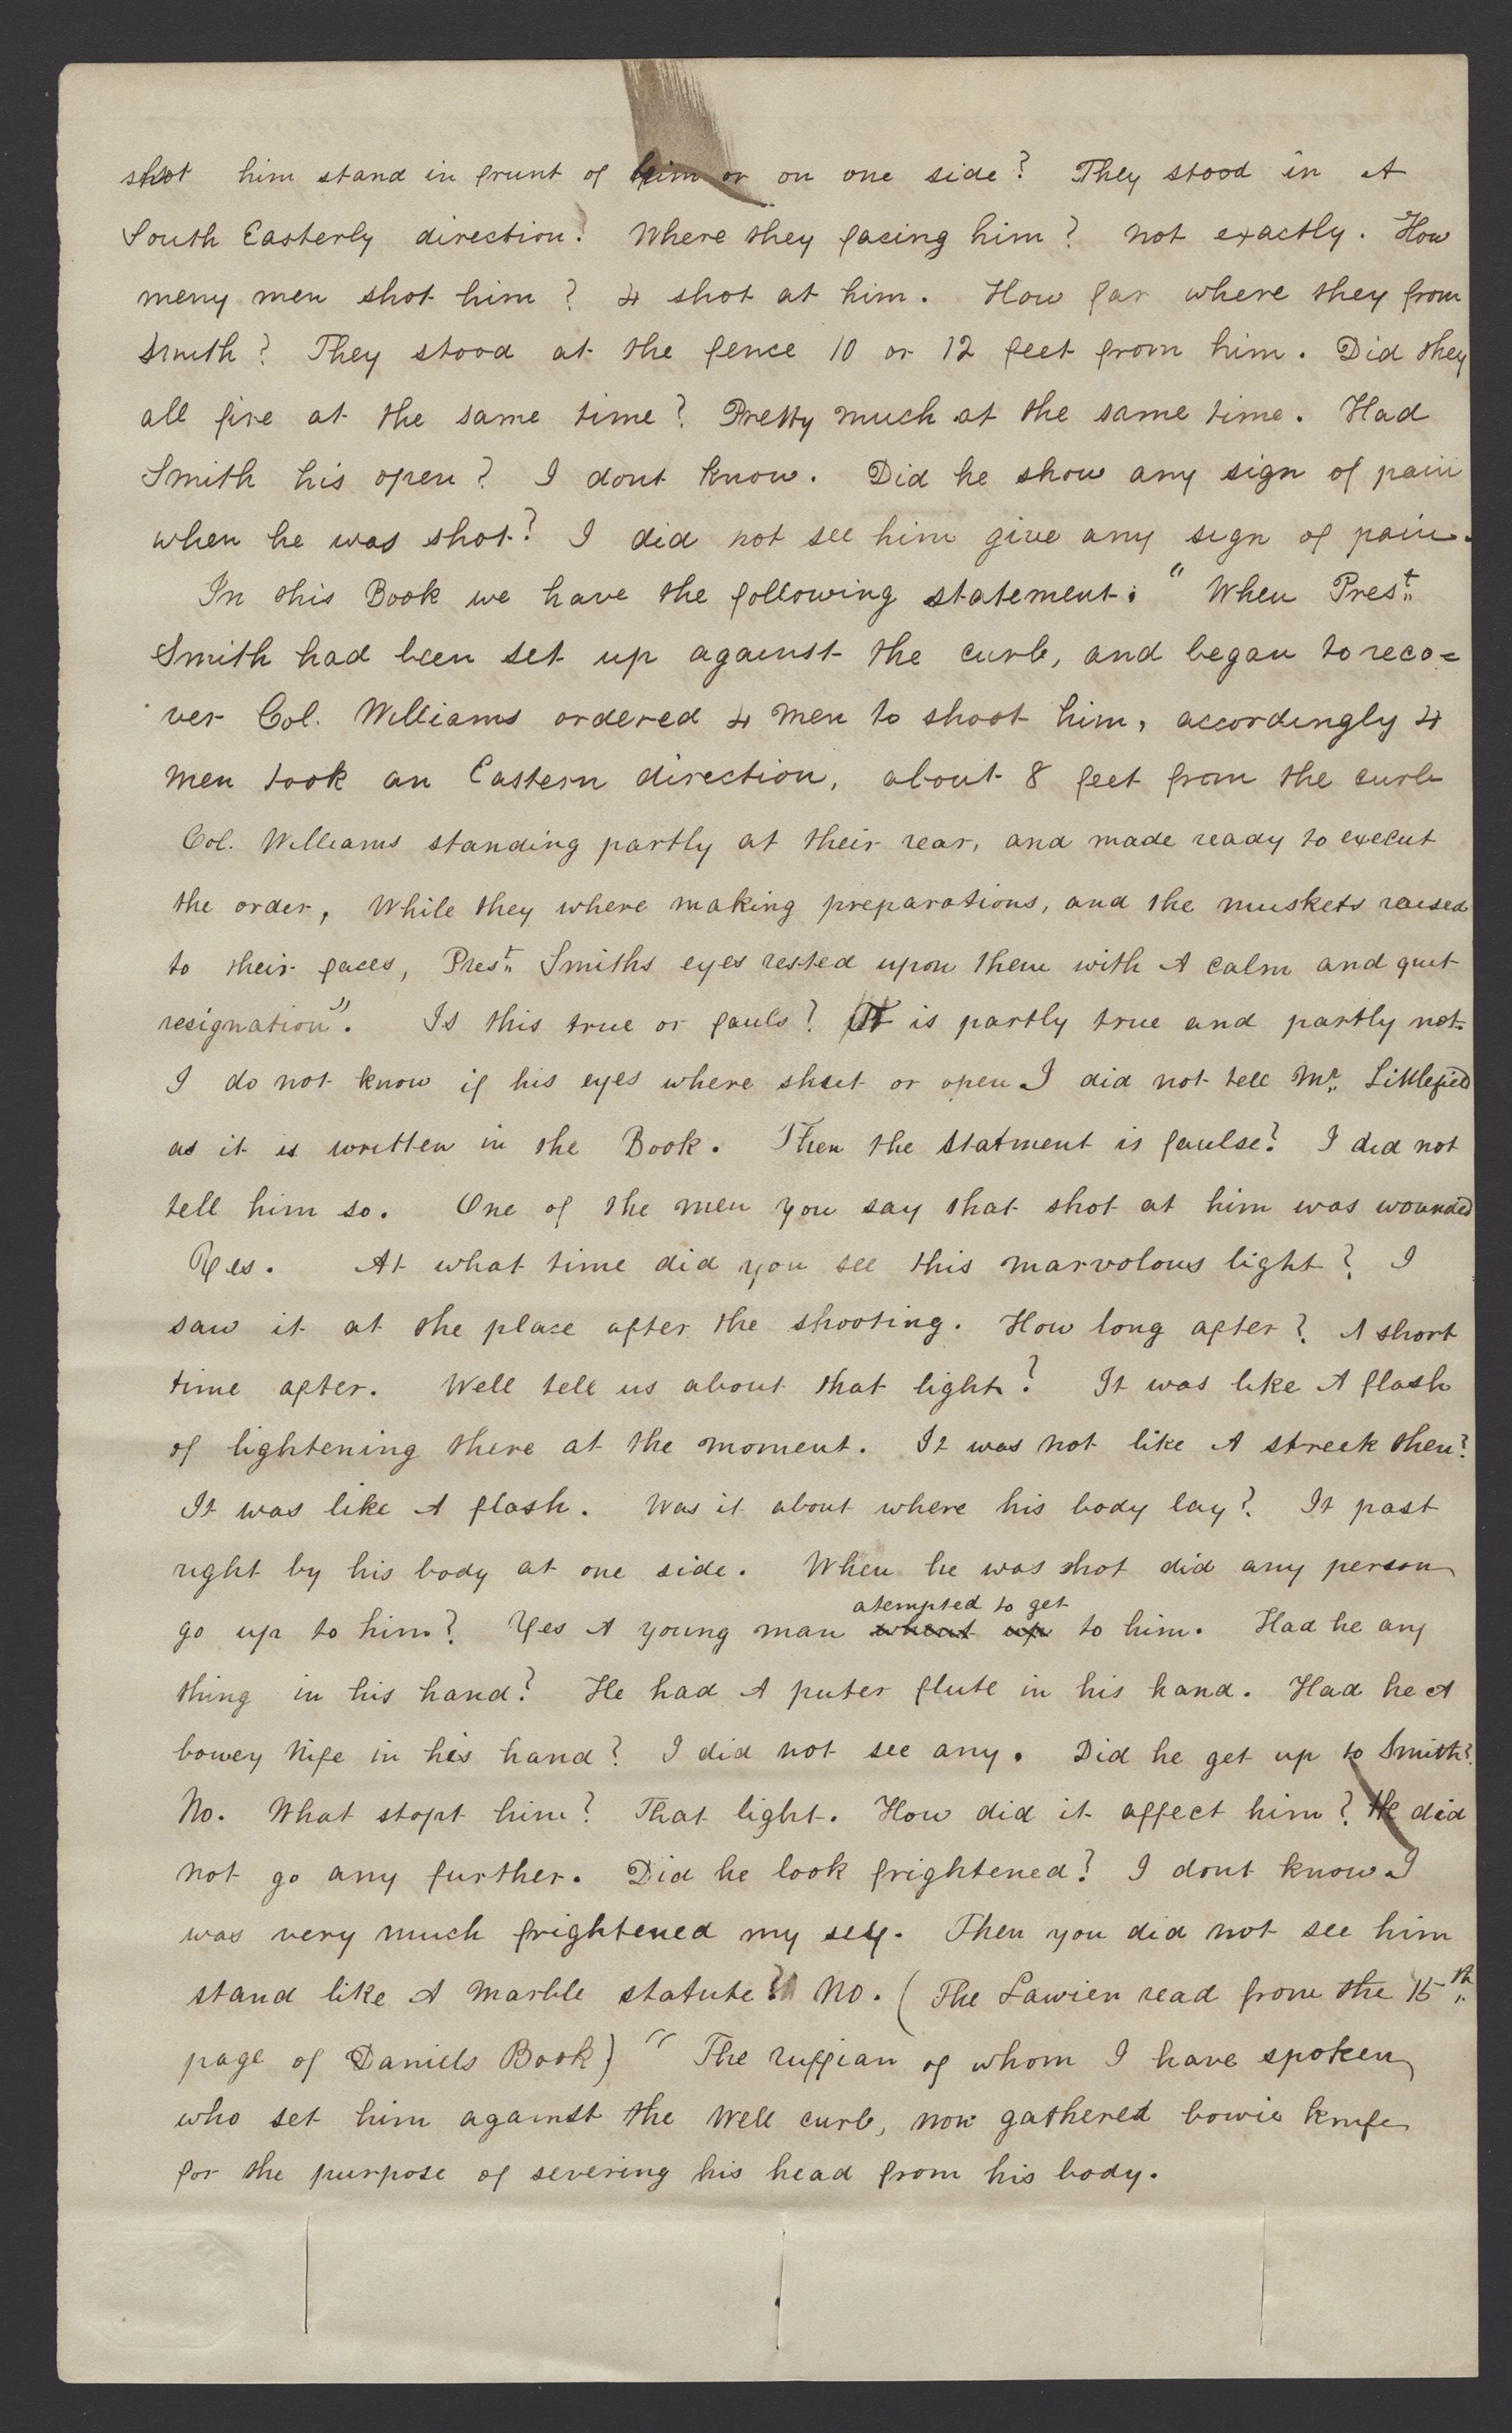 shot him stand in frunt of him or on one side? They stood in A
South Easterly direction. Where they facing him? not exactly. How
meny men shot him? 4 shot at him. How far where they from
Smith? They stood at the fence 10 or 12 feet from him. Did they
all fire at the same time? Pretty much at the same time. Had
Smith his open? I dont know. Did he show any sign of pain
when he was shot? I did not see him give any sign of pain.
In this Book we have the following statement: "When Prest.
Smith had been set up against the curb, and began to reco=
ver Col. Williams ordered 4 men to shoot him, accordingly 4
men took an Eastern direction, about 8 feet from the curb
Col. Williams standing partly at their rear, and made ready to execut
the order, While they where making preparations, and the muskets raised
to their faces, Prest. Smiths eyes rested upon them with A calm and quit
resignation". Is this true or fauls? It is partly true and partly not.
I do not know if his eyes where shut or open I did not tell Mr. Littlefied
as it is written in the Book. Then the statment is faulse? I did not
tell him so. One of the men you say that shot at him was wounded
Yes. At what time did you see this marvolous light? I
saw it at the place after the shooting. How long after? A short
time after. Well tell us about that light? It was like A flash
of lightening there at the moment. It was not like A streek then?
It was like A flash. Was it about where his body lay? It past
right by his body at one side. When he was shot did any person
go up to him? Yes A young man whent up atempted to get to him. Had he any
thing in his hand? He had A puter flute in his hand. Had he A
bowey nife in his hand? I did not see any. Did he get up to Smith?
No. What stopt him? That light. How did it affect him? He did
not go any further. Did he look frightened? I dont know I
was very much frightened my self. Then you did not see him
stand like A marble statute? No. (The Lawier read from the 15th.
page of Daniels Book) "The ruffian of whom I have spoken
who set him against the well curb, now gathered bowie knife
for the purpose of severing his head from his body.